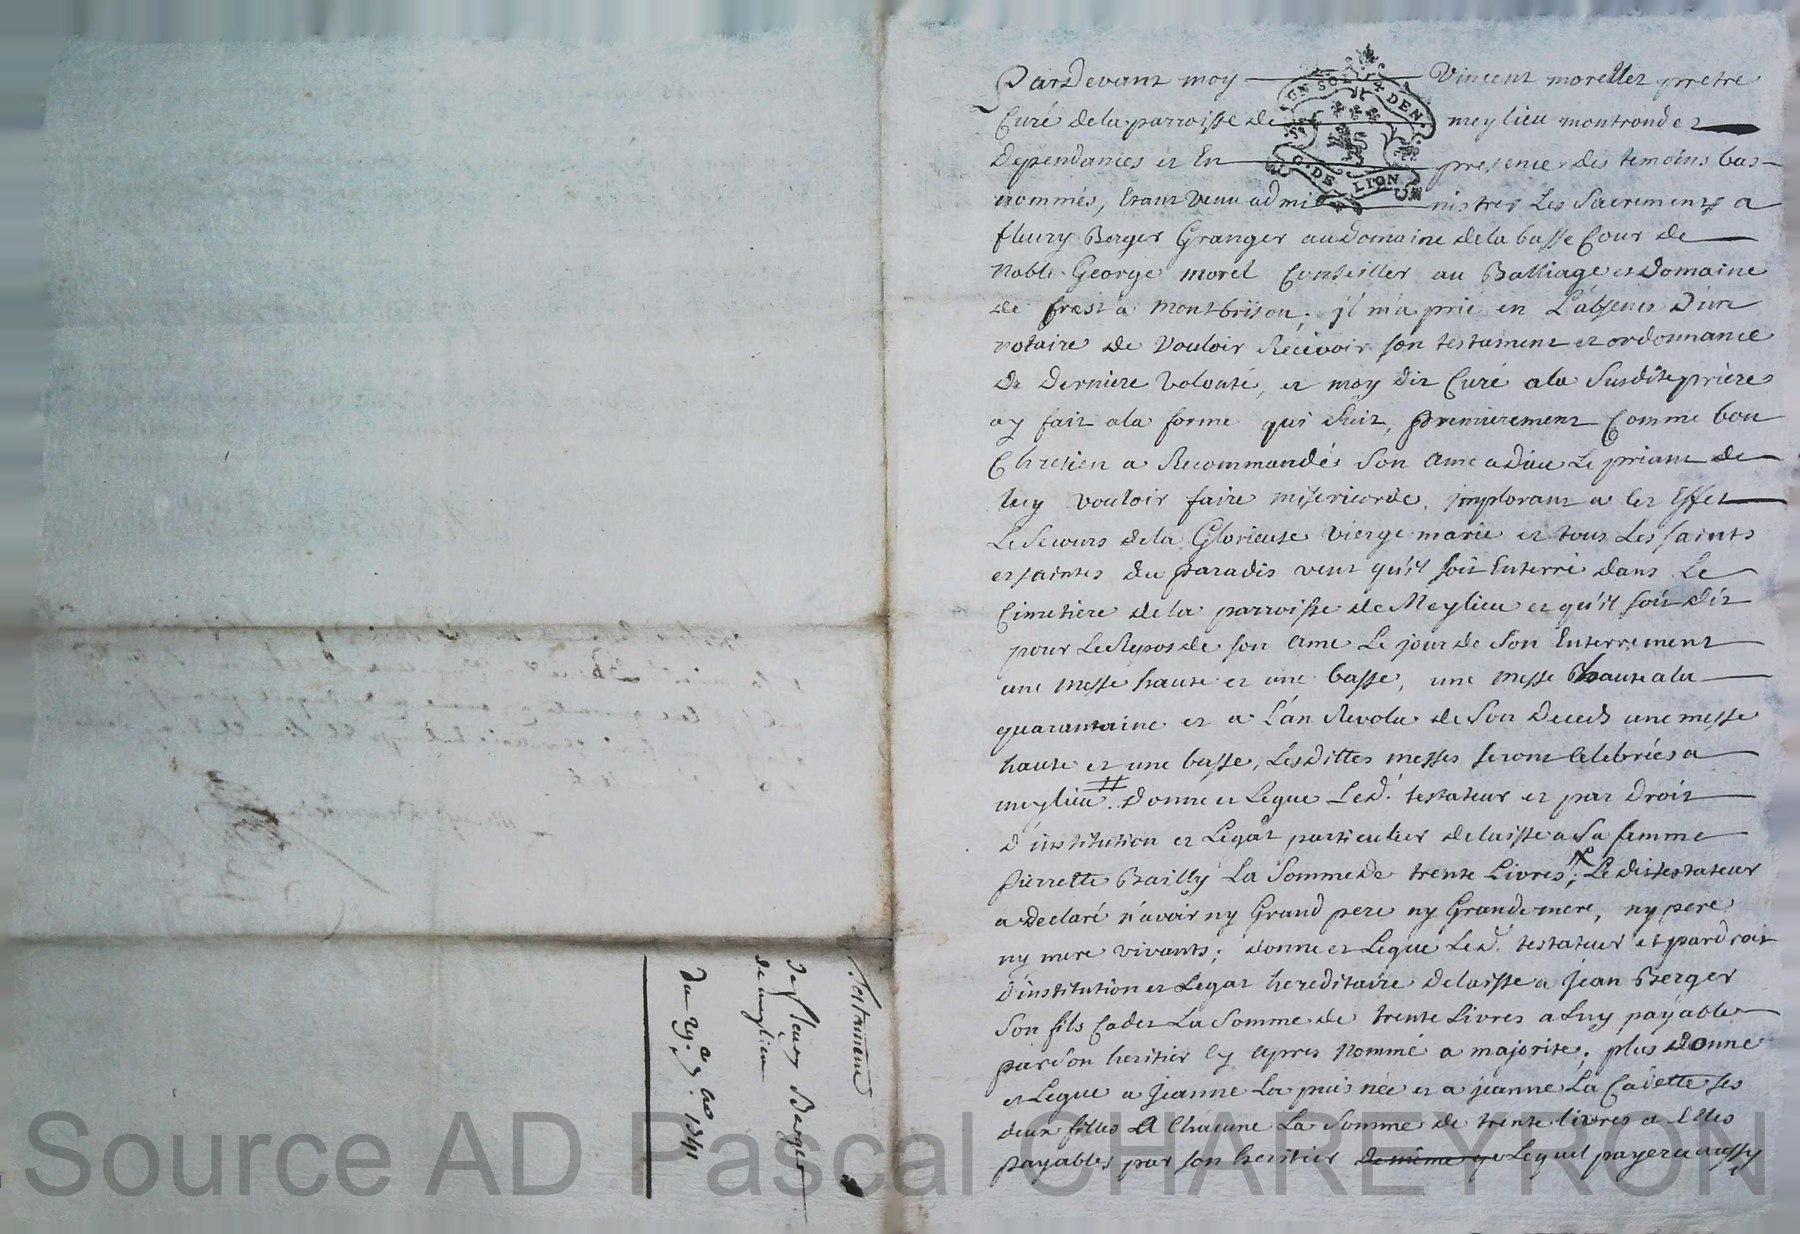 Pardevant moy Vincent morellet pretre
Curé dela parroisse de meylieu montrond et
Dependances et En presence des temoins bas
nommés, Etant venu administrer Les Sacrements a
fleury Berger Granger au Domaine dela basse Cour de
Noble George morel Conseiller au Balliage et Domaine
de forest a Montbrison; jl m'a prié en L'absence D'un
notaire de Vouloir Recevoir son testament et ordonnance
De Derniere Volonté, et moy dit Curé ala Susditte priere
ay fait ala forme qui suit, premierement Comme bon
Chretien a Recommandé Son ame a Dieu Le priant de
luy vouloir faire misericorde, jmplorant a Cet Effet
Le Secours dela Glorieuse Vierge marie et tous Les saints
et saintes du paradis veut qu'il soit Enterré dans Le
Cimetiere dela parroisse de Meylieu et qu'il soit dit
pour Le Repos de son ame Le jour de Son Enterrement
une Messe haute et une basse, une messe haute ala
quarantaine et a L'an Revolu de Son Deceds une messe
haute et une basse, Lesdittes messes seront Celebrées a
meylieu # . Donne et Legue Led. testateur et par Droit
D'institution et Legat particulier delaisse a Sa femme
Pierrette Bailly La Somme de trente Livres; Le dit testateur
a Declaré n'avoir ny Grand pere ny Grande mere, ny pere
ny mere vivants; donne et Legue Led. testateur et par droit
d'institution et Legat hereditaire Delaisse a Jean Berger
Son fils Cadet La Somme de trente Livres a Luy payable
par son heritier Cy apres Nommé a majorité; plus Donne
et Legue a Jeanne La puisnée et a jeanne La Cadette ses
deux filles A Chacune La Somme de trente livres a Elles
payables par son heritier de meme que Lequel payera aussy
testament
de fleury Berger
de meylieu
Source AD Pascal CHAREYRON
UN SOL
DEN.
G. DE LION